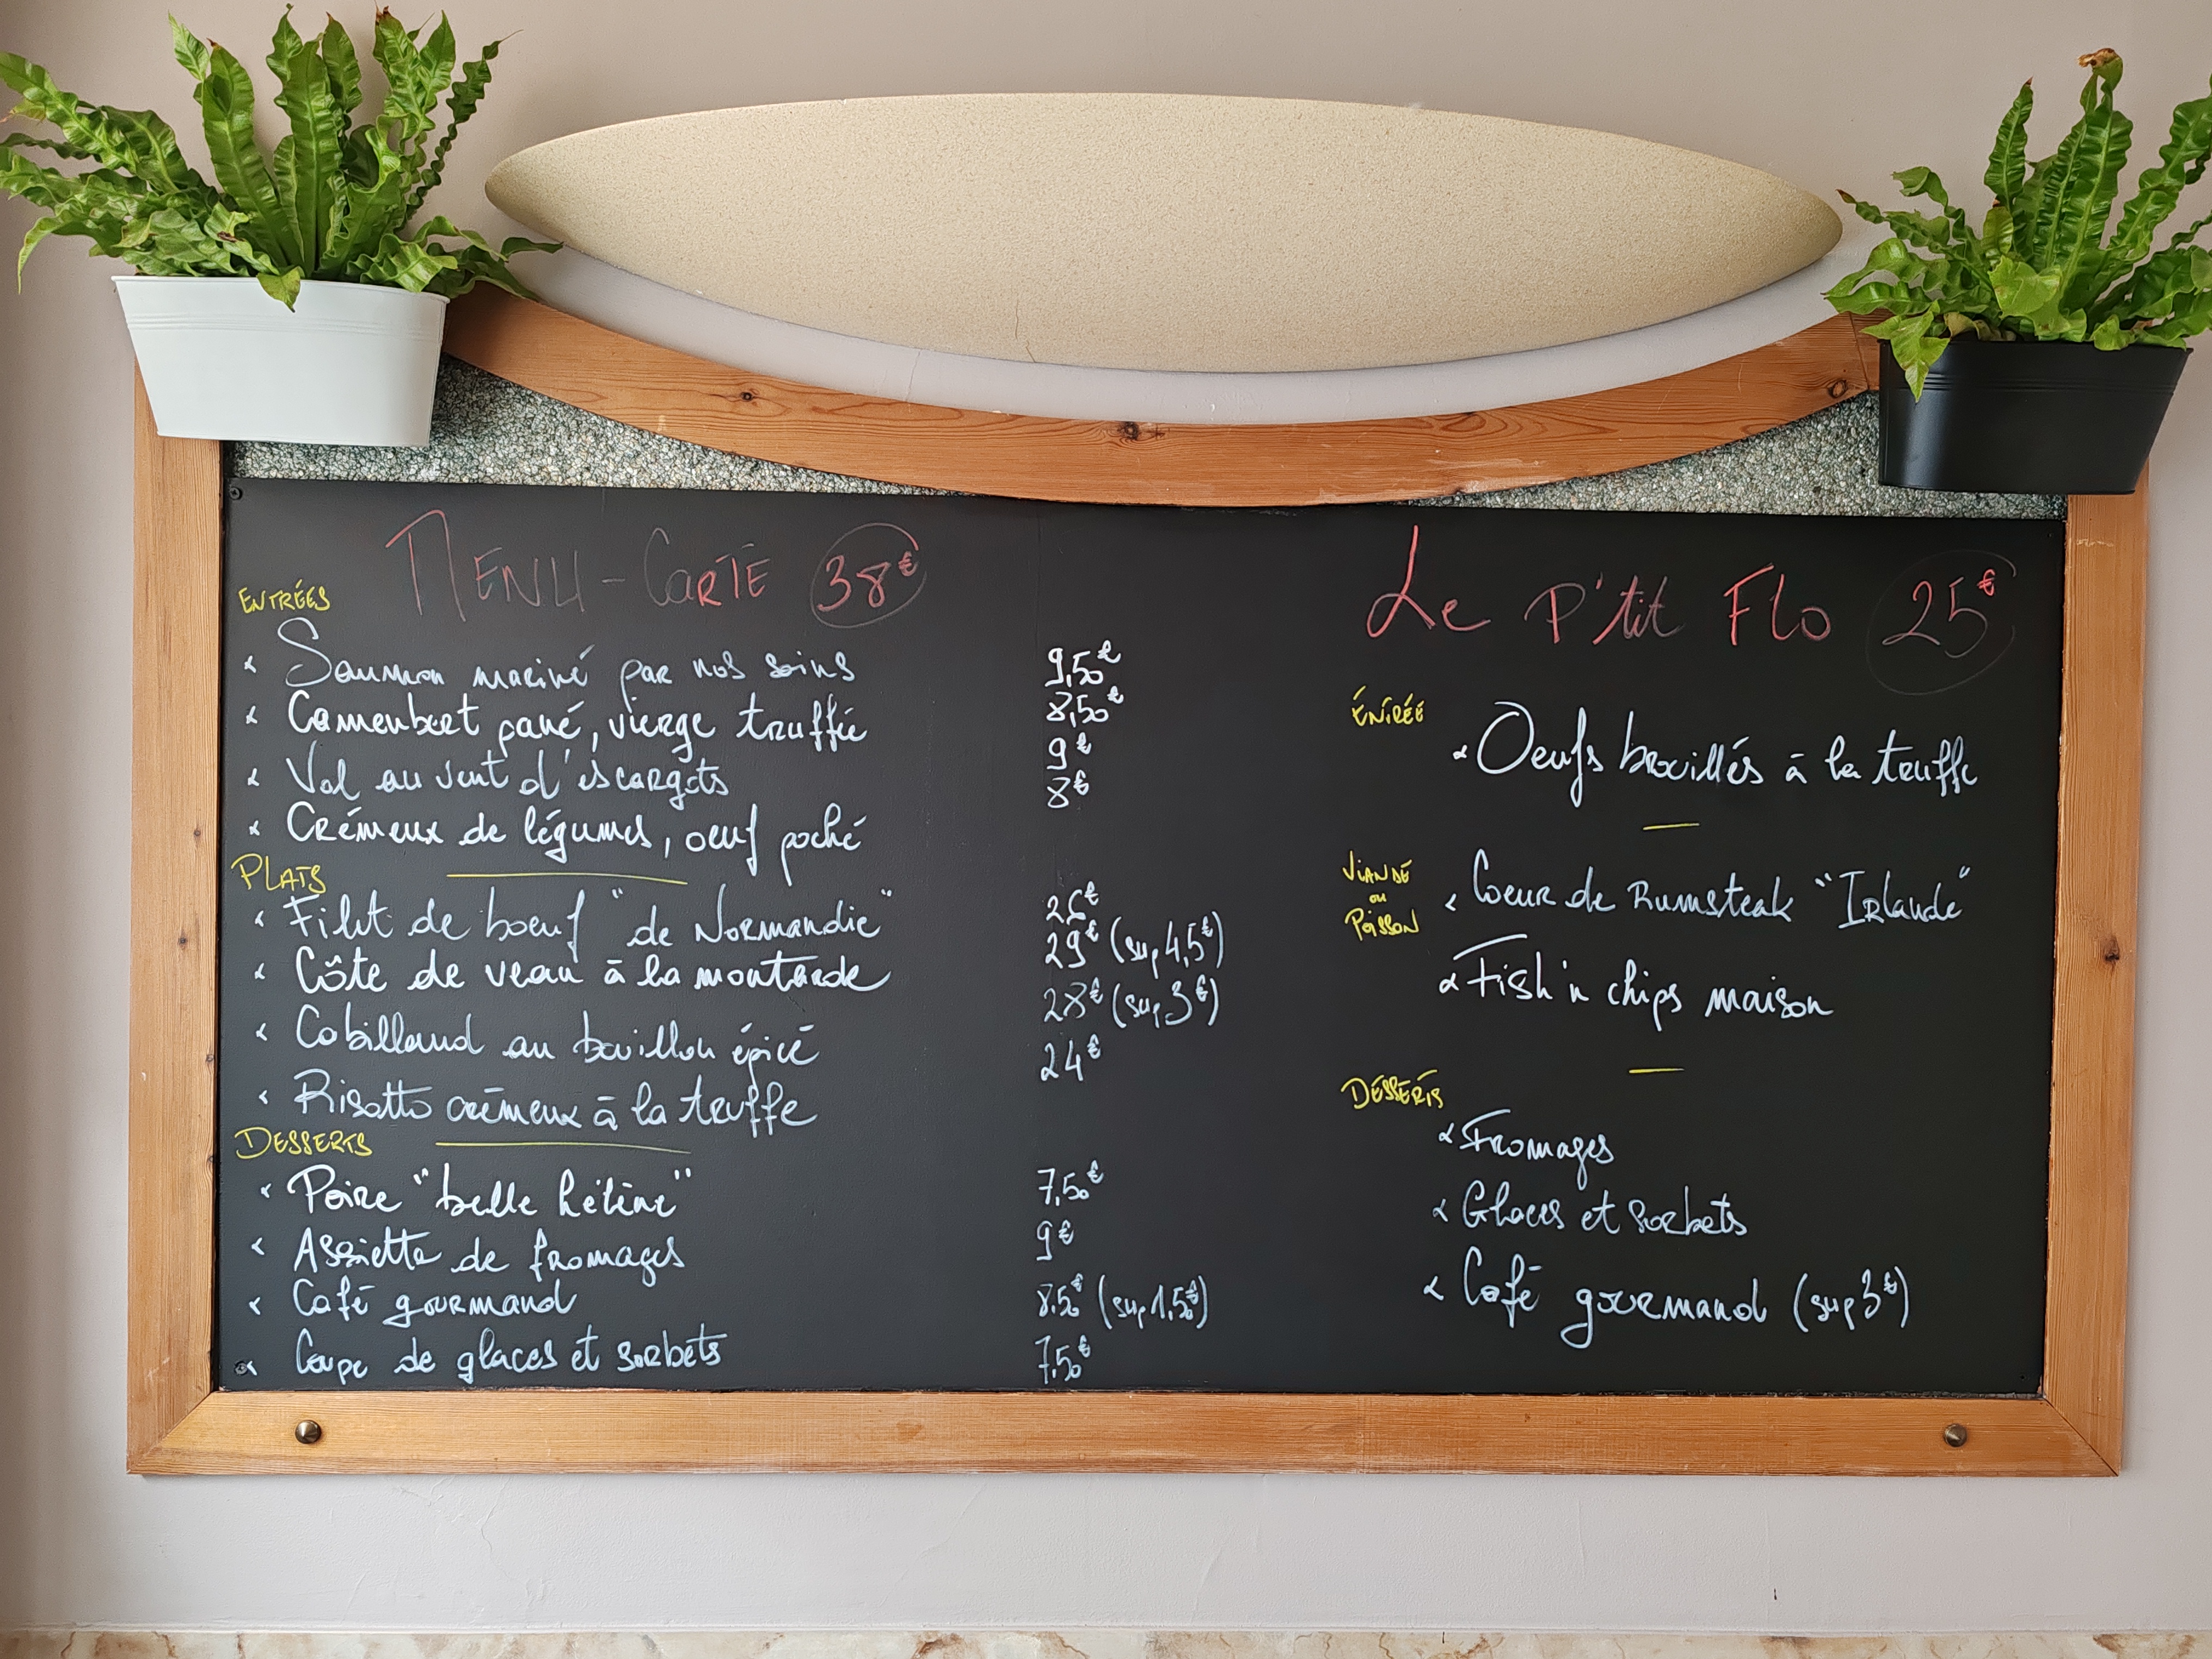 MENU-CARTE 38€
ENTRÉES
Saumon mariné par nos soins 9,50€
Camembert pané, vierge truffée 8,50€
Vol au vent d'escargots 9€
Crémeux de légumes, oeuf poché 8€
PLATS
Filet de boeuf "de Normandie" 26€
Côte de veau à la moutarde 29€ (sup 4,5€)
Cabillaud au bouillon épicé 28€ (sup 3€)
Risotto crémeux à la truffe 24€
DESSERTS
Poire "belle hélène" 7,50€
Assiette de fromages 9€
Café gourmand 8,50€ (sup 1,50€)
Coupe de glaces et sorbets 7,50€
Le P'tit Flo 25€
ENTRÉE
Oeufs brouillés à la truffe
VIANDE
ou
POISSON
Coeur de Rumsteak "Irlande"
Fish'n chips maison
DESSERTS
Fromages
Glaces et sorbets
Café gourmand (sup 3€)